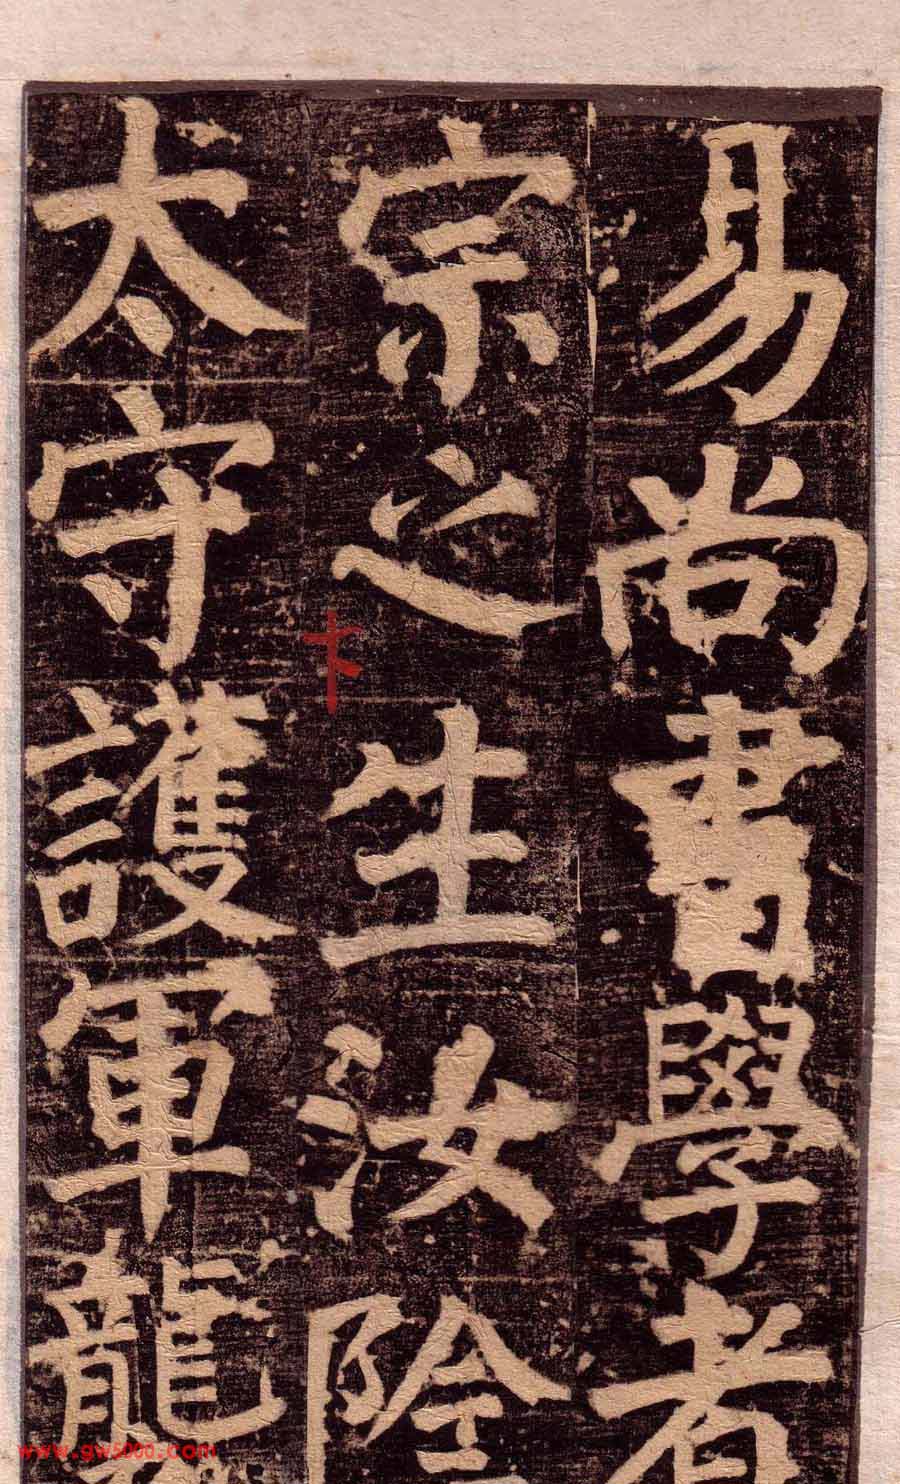 易尚書學者
宗之生汝陰
太守護軍龍
www.gw5000.com